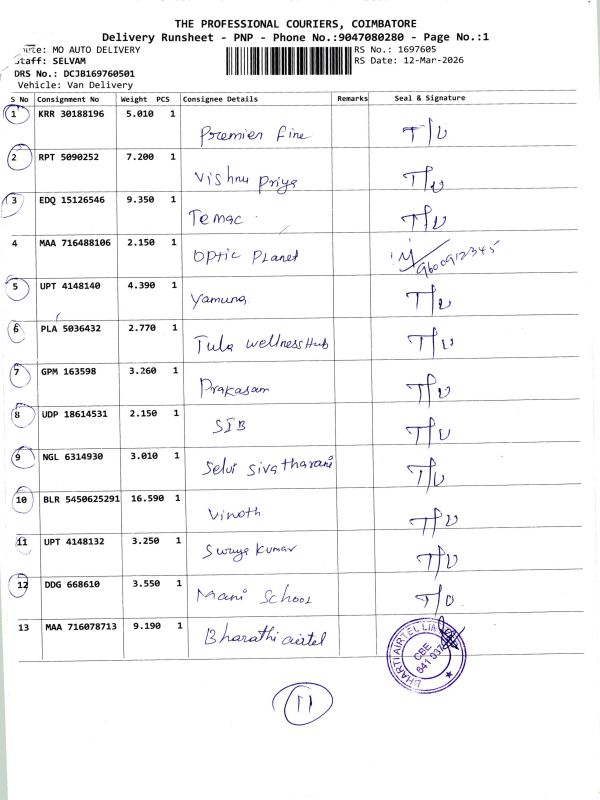 THE PROFESSIONAL COURIERS, COIMBATORE
Delivery Runsheet - PNP - Phone No.:9047080280 - Page No.:1
MO AUTO DELIVERY RS No.: 1697605
Staff: SELVAM RS Date: 12-Mar-2026
DRS No.: DCJB169760501
Vehicle: Van Delivery
S No Consignment No Weight PCS Consignee Details Remarks Seal & Signature
1 KRR 30188196 5.010 1 Premier fine T/U
2 RPT 5090252 7.200 1 Vishnu Priya T/U
3 EDQ 15126546 9.350 1 Temac T/U
4 MAA 716488106 2.150 1 Optic Planet 9600912345
5 UPT 4148140 4.390 1 Yamuna T/U
6 PLA 5036432 2.770 1 Tula wellness Hub T/U
7 GPM 163598 3.260 1 Prakasam T/U
8 UDP 18614531 2.150 1 SIB T/U
9 NGL 6314930 3.010 1 Selvi Sivatharani T/U
10 BLR 5450625291 16.590 1 Vinoth T/U
11 UPT 4148132 3.250 1 Surya Kumar T/U
12 DDG 668610 3.550 1 Mani School T/U
13 MAA 716078713 9.190 1 Bharathi airtel
BHARTI AIRTEL LIM
CBE
641 037
11